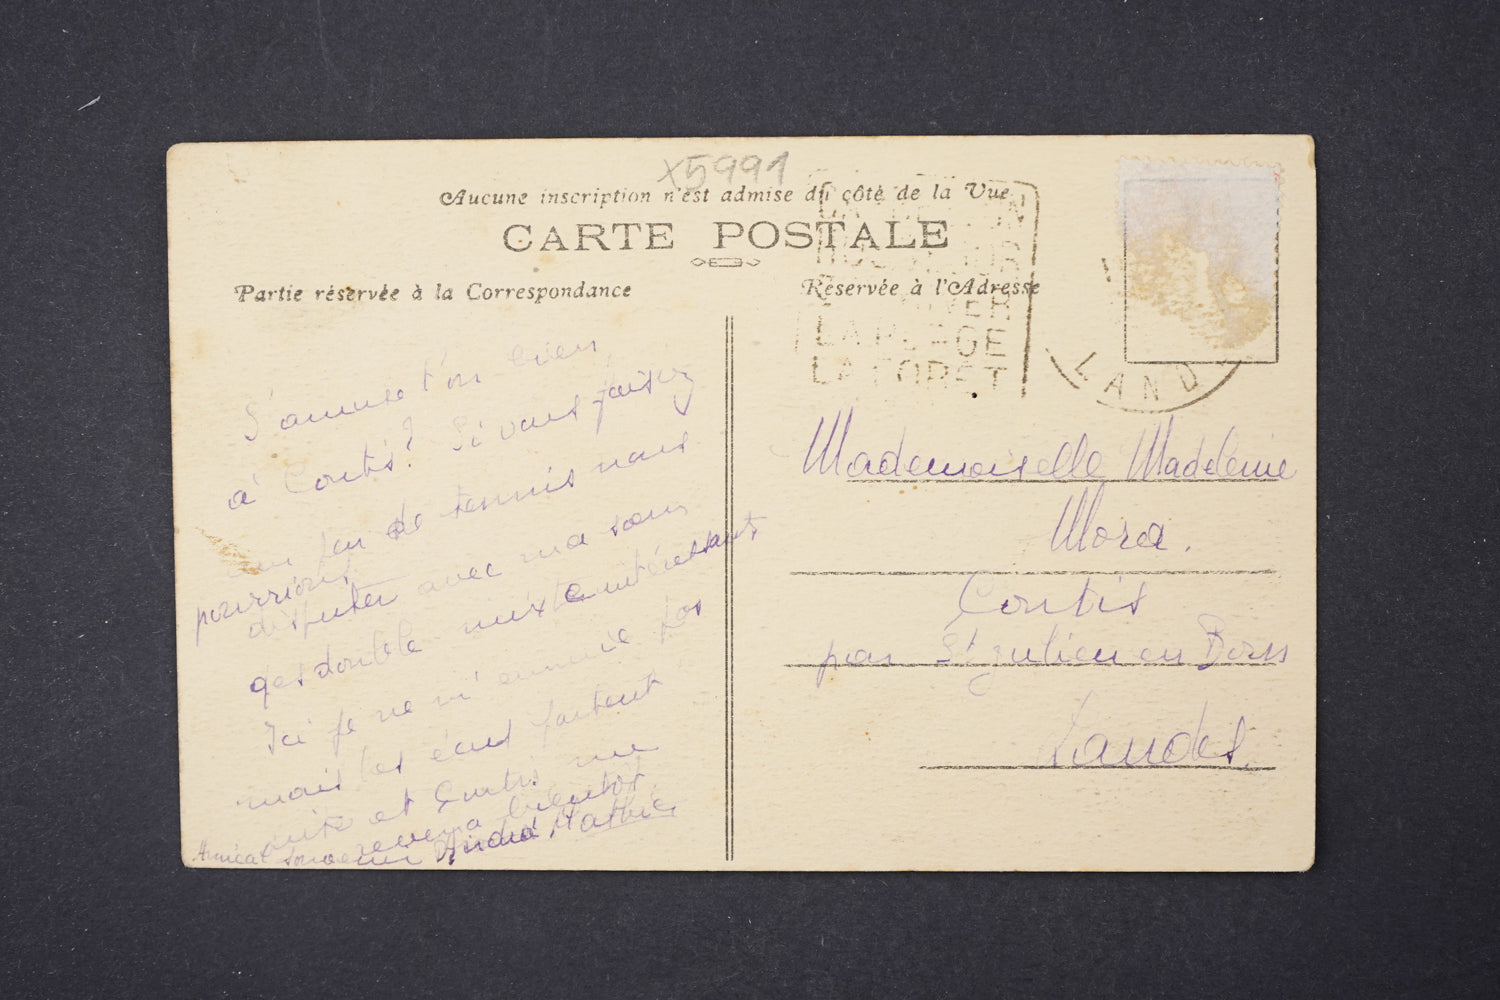 X5991
Aucune inscription n'est admise du côté de la Vue
CARTE POSTALE
Partie réservée à la Correspondance
Réservée à l'Adresse
LA PLAGE
LA FORET
LAND
S'amuse t'on bien
à Contis? Si vous faisiez
un peu de tennis nous
pourrions
disputer avec ma sœur
des double mixte intéressants
Ici je ne m'ennuie pas
mais les jours passent
vite et Contis me
reverra bientôt
Amical souvenir André Mathie
Mademoiselle Madeleine
Mora.
Contis
par St Julien en Born
Landes.